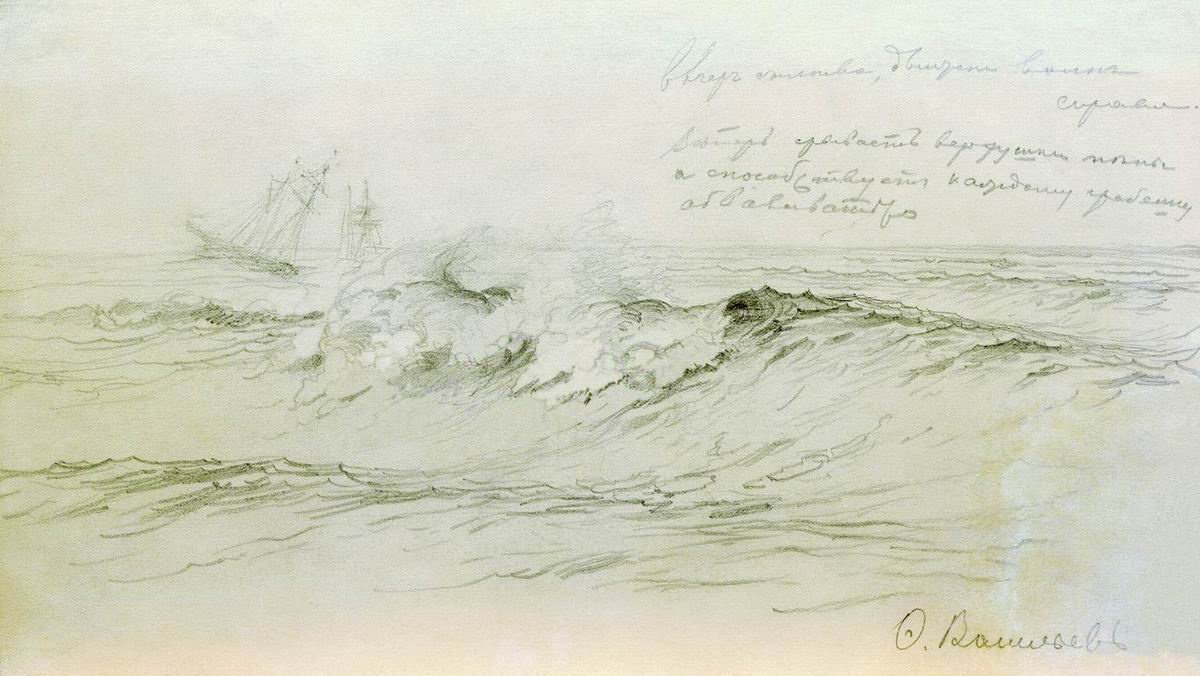 Вѣтеръ слѣва, движенiе волнъ
справа.
Вѣтеръ срываетъ верхушки
и способствуетъ каждому гребешку
обваливаться
Ѳ. Васильевъ